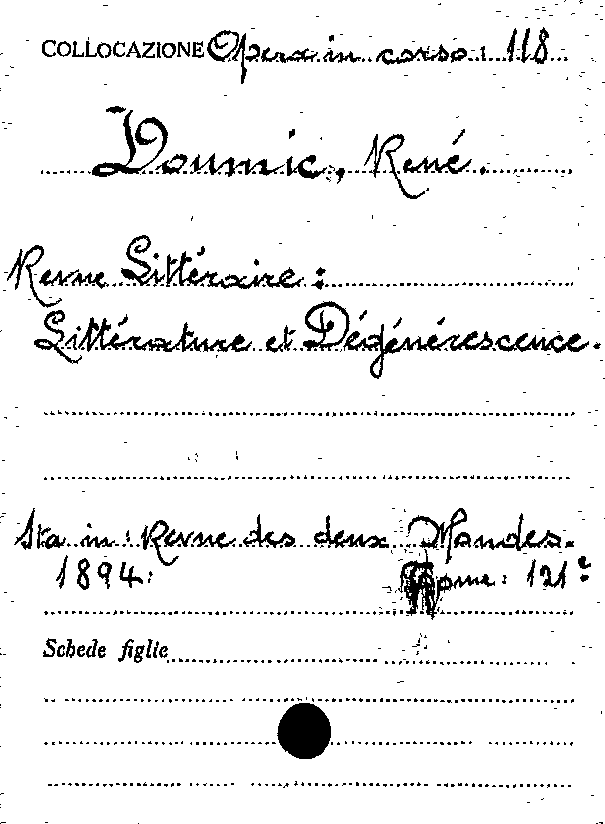 COLLOCAZIONE Opera in corso: 118
Doumic, René.
Revue Littéraire:
Littérature et Dégénérescence.
Sta in: Revue des deux Mondes.
1894: Tome: 121e
Schede figlie